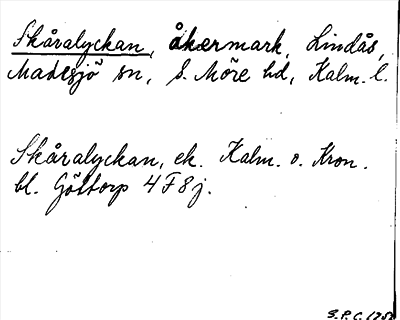 Skåralyckan, åkermark, Lindås,
Madesjö sn, S. Möre hd, Kalm. l.
Skåralyckan, ek. Kalm. o. Kron.
bl. Göttorp 4F8j.
S.P.C.